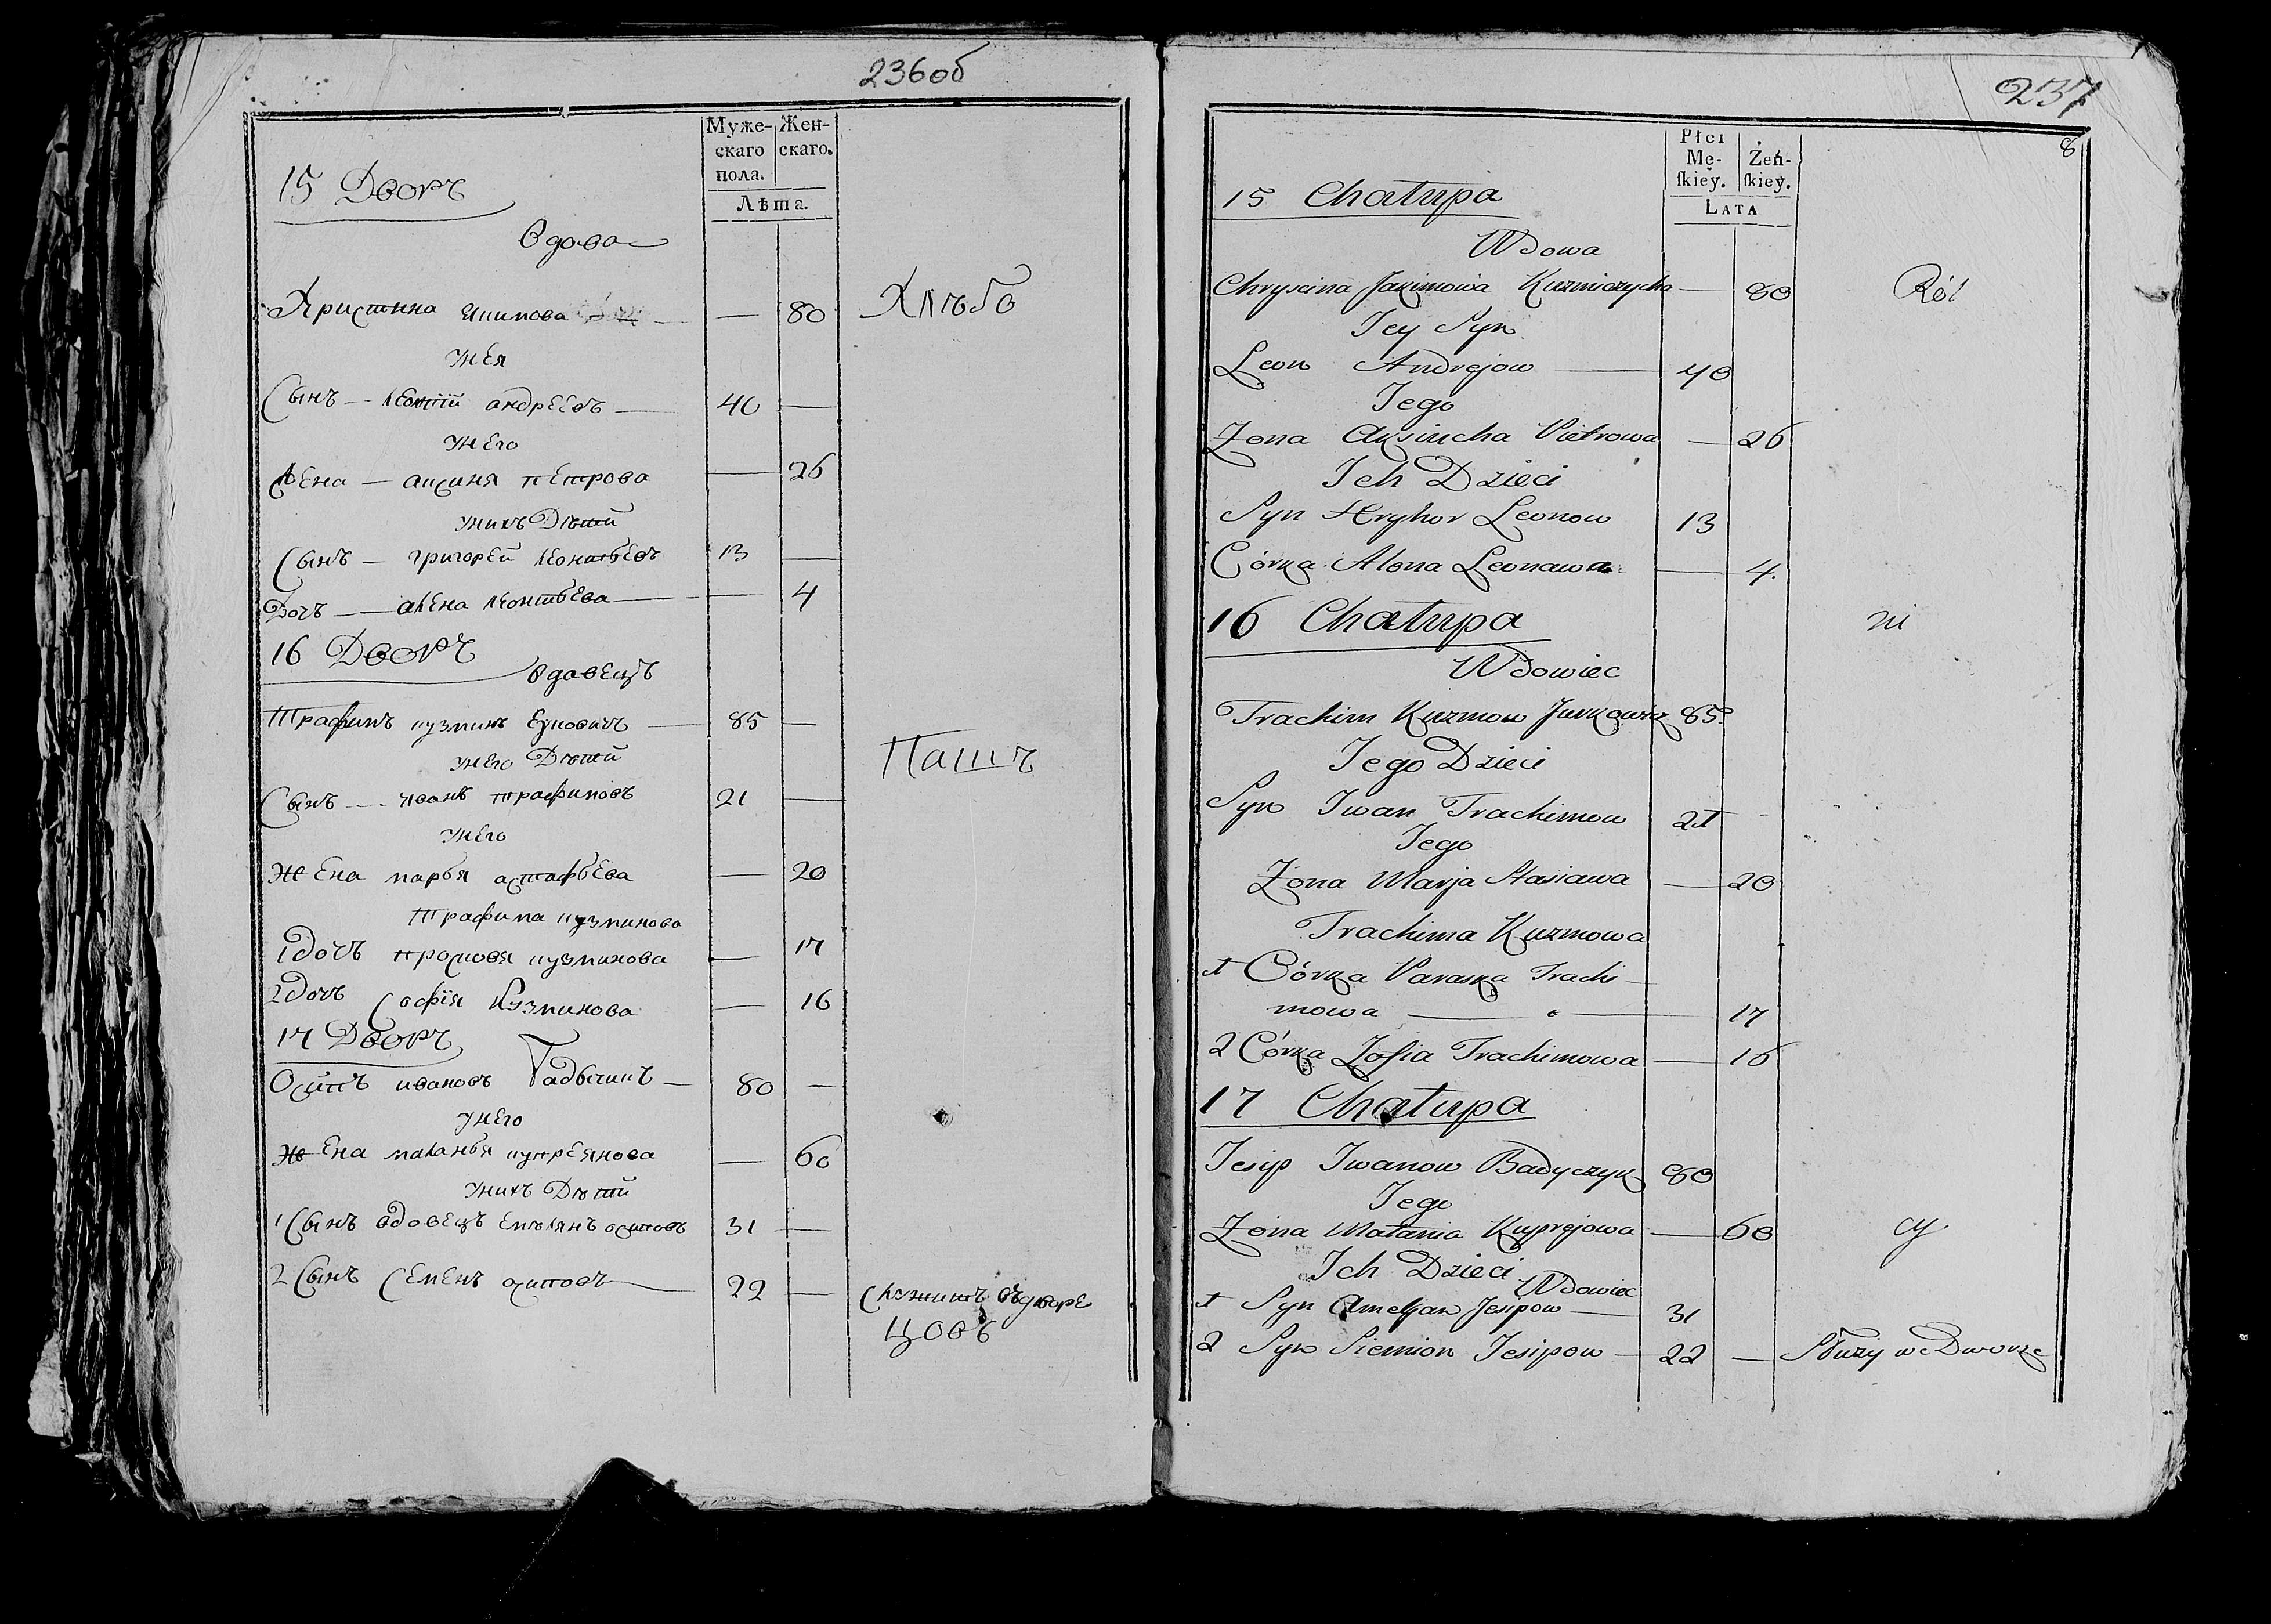 236об
Муже- Жен-
скаго скаго.
пола.
Лѣта.
15 Дворъ
Вдова
Христина Якимова — 80 Хлѣбо
у нея
Сынъ — Леонтій Андреевъ — 40 —
у него
Жена — Аксиня Петрова — 26
у нихъ Дѣтей
Сынъ — Григорей Леонтьевъ 13 —
Дочь — Алена Леонтьева — 4
16 Дворъ
Вдовецъ
Трафимъ Кузминъ — 85 —
у него Дѣтей
Пашъ
Сынъ — Иванъ Трафимовъ 21 —
у него
Жена Марья Астафьева — 20
Трафима Кузминова
1 дочь Просковя Кузминова — 17
2 дочь Софія Кузминова — 16
17 Дворъ
Осипъ Ивановъ Бадычикъ — 80 —
у него
Жена Маланья Купреянова — 60
у нихъ Дѣтей
1 Сынъ вдовецъ Емельянъ Осиповъ 31 —
2 Сынъ Семенъ Осиповъ — 22 — Служитъ въ дворе
цовъ
237
8
Płci
Mę- Żeń-
ſkiey. ſkiey.
LATA
15 Chałupa
Wdowa
Chryscina Jakimowa Kuzmiczycha — 80 Rol
Jey Syn
Leon Andrejow — 40
Jego
Zona Aksincha Pietrowa — 26
Ich Dzieci
Syn Hryhor Leonow 13
Córka Alona Leonawa — 4.
16 Chałupa
ni
Wdowiec
Trachim Kuzmow Jurkowicz 85.
Jego Dzieci
Syn Iwan Trachimow 21
Jego
Zona Marja Stasiawa — 20
Trachima Kuzmowa
1 Córka Paraska Trachi-
mowa — 17
2 Córka Zofia Trachimowa — 16
17 Chałupa
Jesip Iwanow Badyczyk 80
Jego
Zona Małania Kuprejowa — 60 cy
Ich Dzieci
Wdowiec
1 Syn Ameljan Jesipow — 31
2 Syn Siemion Jesipow — 22 — Służy we Dworze